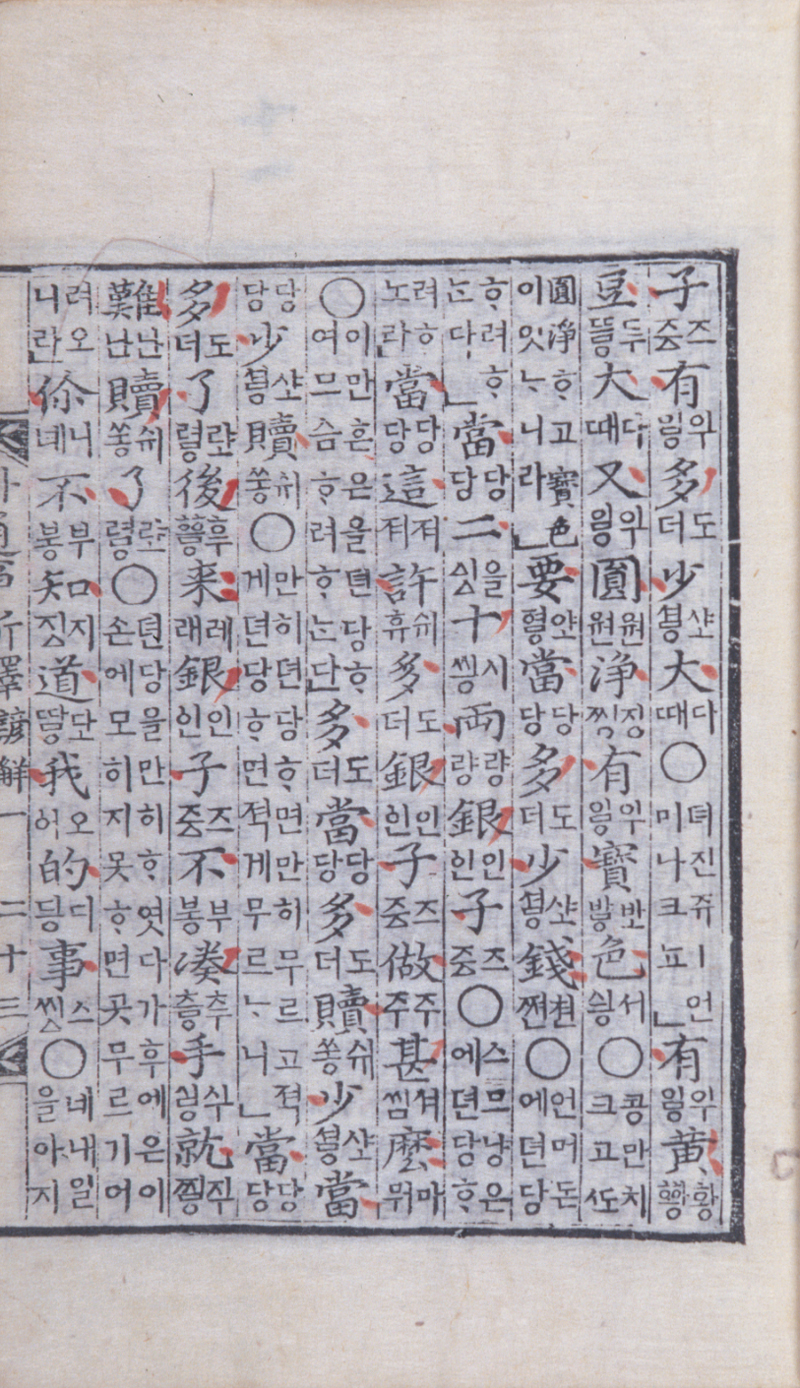 子즈중有위읳多도더少샾셯大다때○뎌진쥬ㅣ언미나크뇨」有위읳黃황
豆두大다때又위읳圓원원淨징찡有위읳寶色서싕○콩만치크고ᄯᅩ
圓淨ᄒᆞ고寶色이잇ᄂᆞ니라」要當당당多도더少샾셯錢쳔쪈○언머돈에뎐당
ᄒᆞ려ᄒᆞᄂᆞᆫ다」當당당二을十시씽兩량량銀인인子즈중○스므냥은에뎐당ᄒᆞ
려ᄒᆞ노라」當당당這져져許쉬휴多도더銀인인子즈중做주주甚셔씸麽마뭐
○이만흔은을뎐당ᄒᆞ여므슴ᄒᆞ려ᄒᆞᄂᆞᆫ다」多도더當당당多도더贖쉬쑹少샾셯當
당당少샾셯贖쉬쑹○만히뎐당ᄒᆞ면만히무르고적게뎐당ᄒᆞ면적게무르ᄂᆞ니」當당당
多도더了後후来레래銀인인子즈중不부봉湊추층手就직찡
難난난贖쉬쑹了○뎐당을만히ᄒᆞ엿다가후에은이손에모히지못ᄒᆞ면곳무르기어
려오니라」伱니녜不부봉知지징道我오어的디딍事스○네내일을아지
朴通事新釋諺解一 二十三